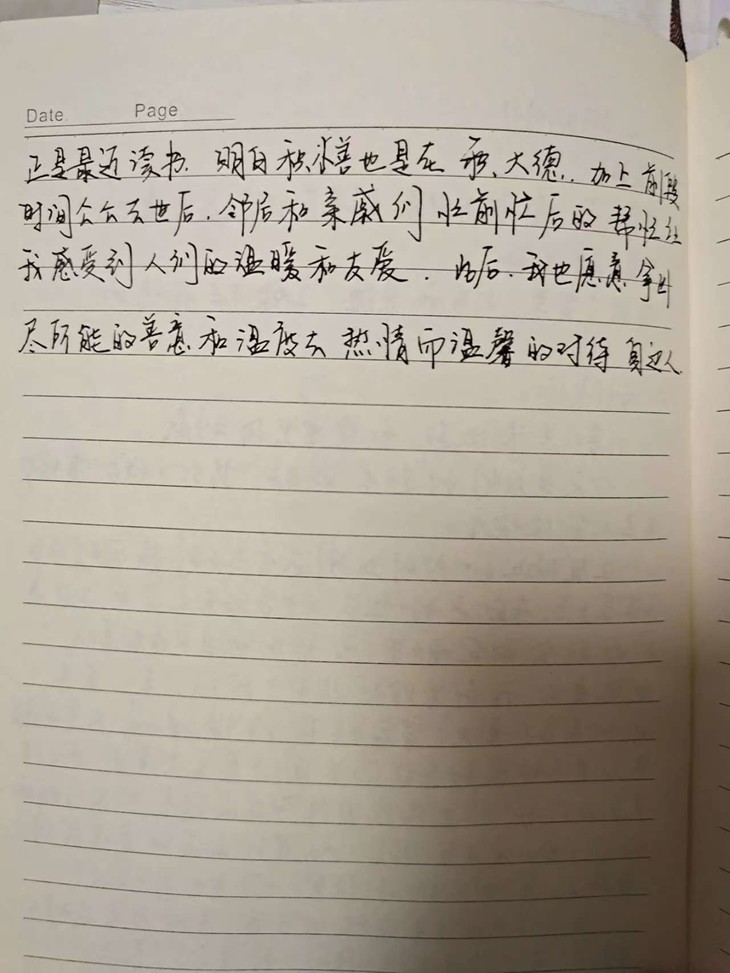 Date Page
正是最近读书. 明白积小善也是在积大德. 加上前段
时间公公去世后. 邻居和亲戚们忙前忙后的帮忙让
我感受到人们的温暖和友爱. 此后. 我也愿意拿出
尽所能的善意和温度去热情而温馨的对待身边人